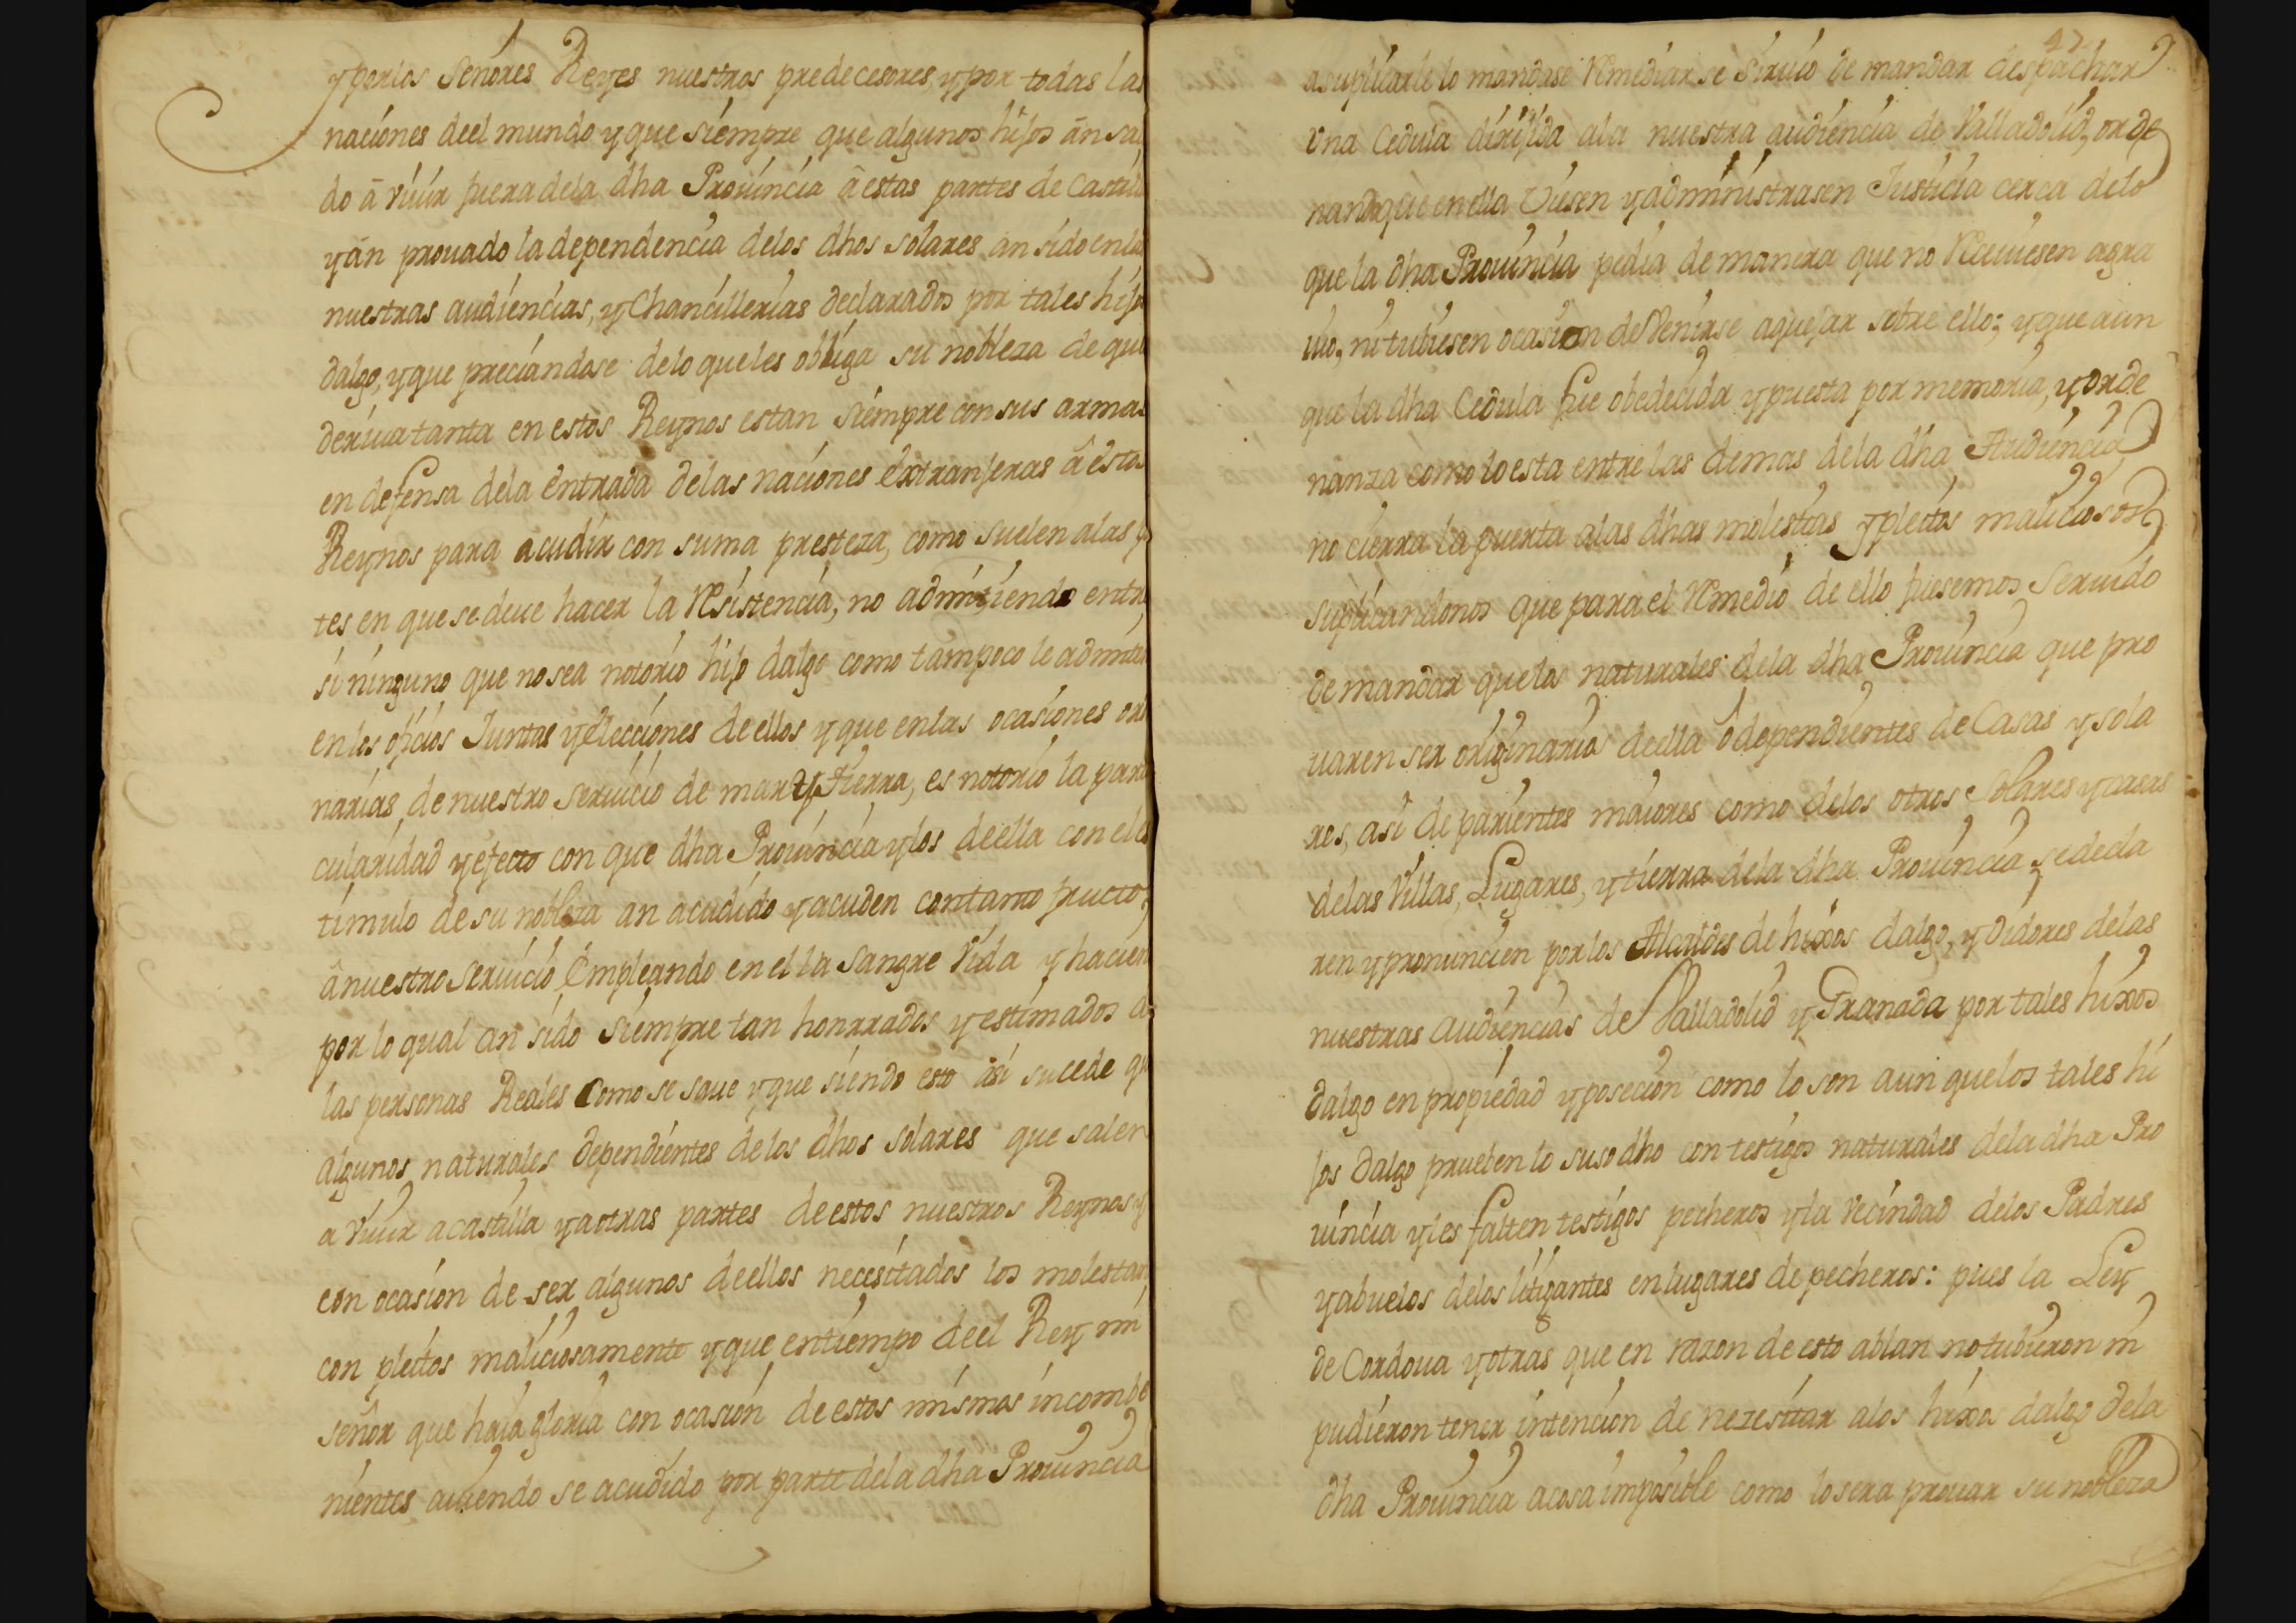 y por los Señores Reyes nuestros predecesores, y por todas las
naciones deel mundo y que siempre que algunos hijos ān sa
do ā viuir fuera dela dha Prouincia ā estas partes de Castill
y ān prouado la dependencia delos dhos solares an sido en las
nuestras audiencias, y Chancillerias declarados por tales hijo
dalgo, y que preciandose delo que les obliga su nobleza de que
deriua tanta en estos Reynos estan siempre con sus armas
en defensa dela entrada delas naciones extranjeras â estos
Reynos para acudir con suma presteza, como suelen alas p
tes en que se deue hacer la Resistencia, no admitiendo entre
si ninguno que no sea notorio hijo dalgo como tampoco le admiten
en los oficios Juntas y elecciones de ellos y que en las ocasiones ordi
narias de nuestro seruicio de mar y tierra, es notorio la parti
cularidad y efecto con que dha Prouincia y los deella con el es
timulo de su nobleza an acudido y acuden con tanto fructo,
â nuestro seruicio Empleando en el la sangre Vida y hacien
por lo qual an sido siempre tan honrrados y estimados de
las personas Reales como se saue y que siendo esto āsi sucede qu
algunos naturales dependientes de los dhos solares que salen
a Viuir a castilla y a otras partes de estos nuestros Reynos y
con ocasion de ser algunos deellos necesitados los molestan
con pleitos maliciosamente y que en tiempo deel Rey mi
señor que haia gloria con ocasion de estos mismos incombe
nientes auiendo se acudido por parte dela dha Prouincia
47
a suplicarle lo mandase Remediar se siruio de mandar despachar
Una Cedula dirijida ala nuestra audiencia de Valladolid, orde
nando que en ella Viesen y administrasen Justicia cerca delo
que la dha Prouincia pedia de manera que no Receuiesen agra
uio, ni tubiesen ocasion de Venirse a quejar sobre ello; y que aun
que la dha Cedula fue obedecida y puesta por memoria, y orde
nanza como lo esta entre las demas dela dha Audiencia
no cierra la puerta alas dhas molestias y pleitos maliciosos
suplicandonos que para el Remedio de ello fuesemos Seruido
de mandar que los naturales dela dha Prouincia que pro
uaren ser originarios deella ô dependientes de Casas y sola
res, asi de parientes maiores como delos otros Solares y casas
delas Villas, Lugares, y tierra dela dha Prouincia se decla
ren y pronuncien por los Alcaldes de hixos dalgo, y Oidores delas
nuestras audiencias de Valladolid y Granada por tales hixos
dalgo en propiedad y posecion como lo son aun que los tales hi
jos dalgo prueben lo suso dho con testigos naturales dela dha Pro
uincia y les falten testigos pecheros y la vecindad delos Padres
y abuelos delos litigantes en lugares de pecheros: pues la Ley
de Cordoua y otras que en razon de esto ablan no tubieron ni
pudieron tener intencion de nezesitar alos hixos dalgo dela
dha Prouincia a cosa imposible como lo sera prouar su nobleza